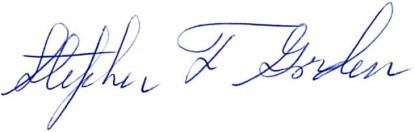 Stephen F Gorden